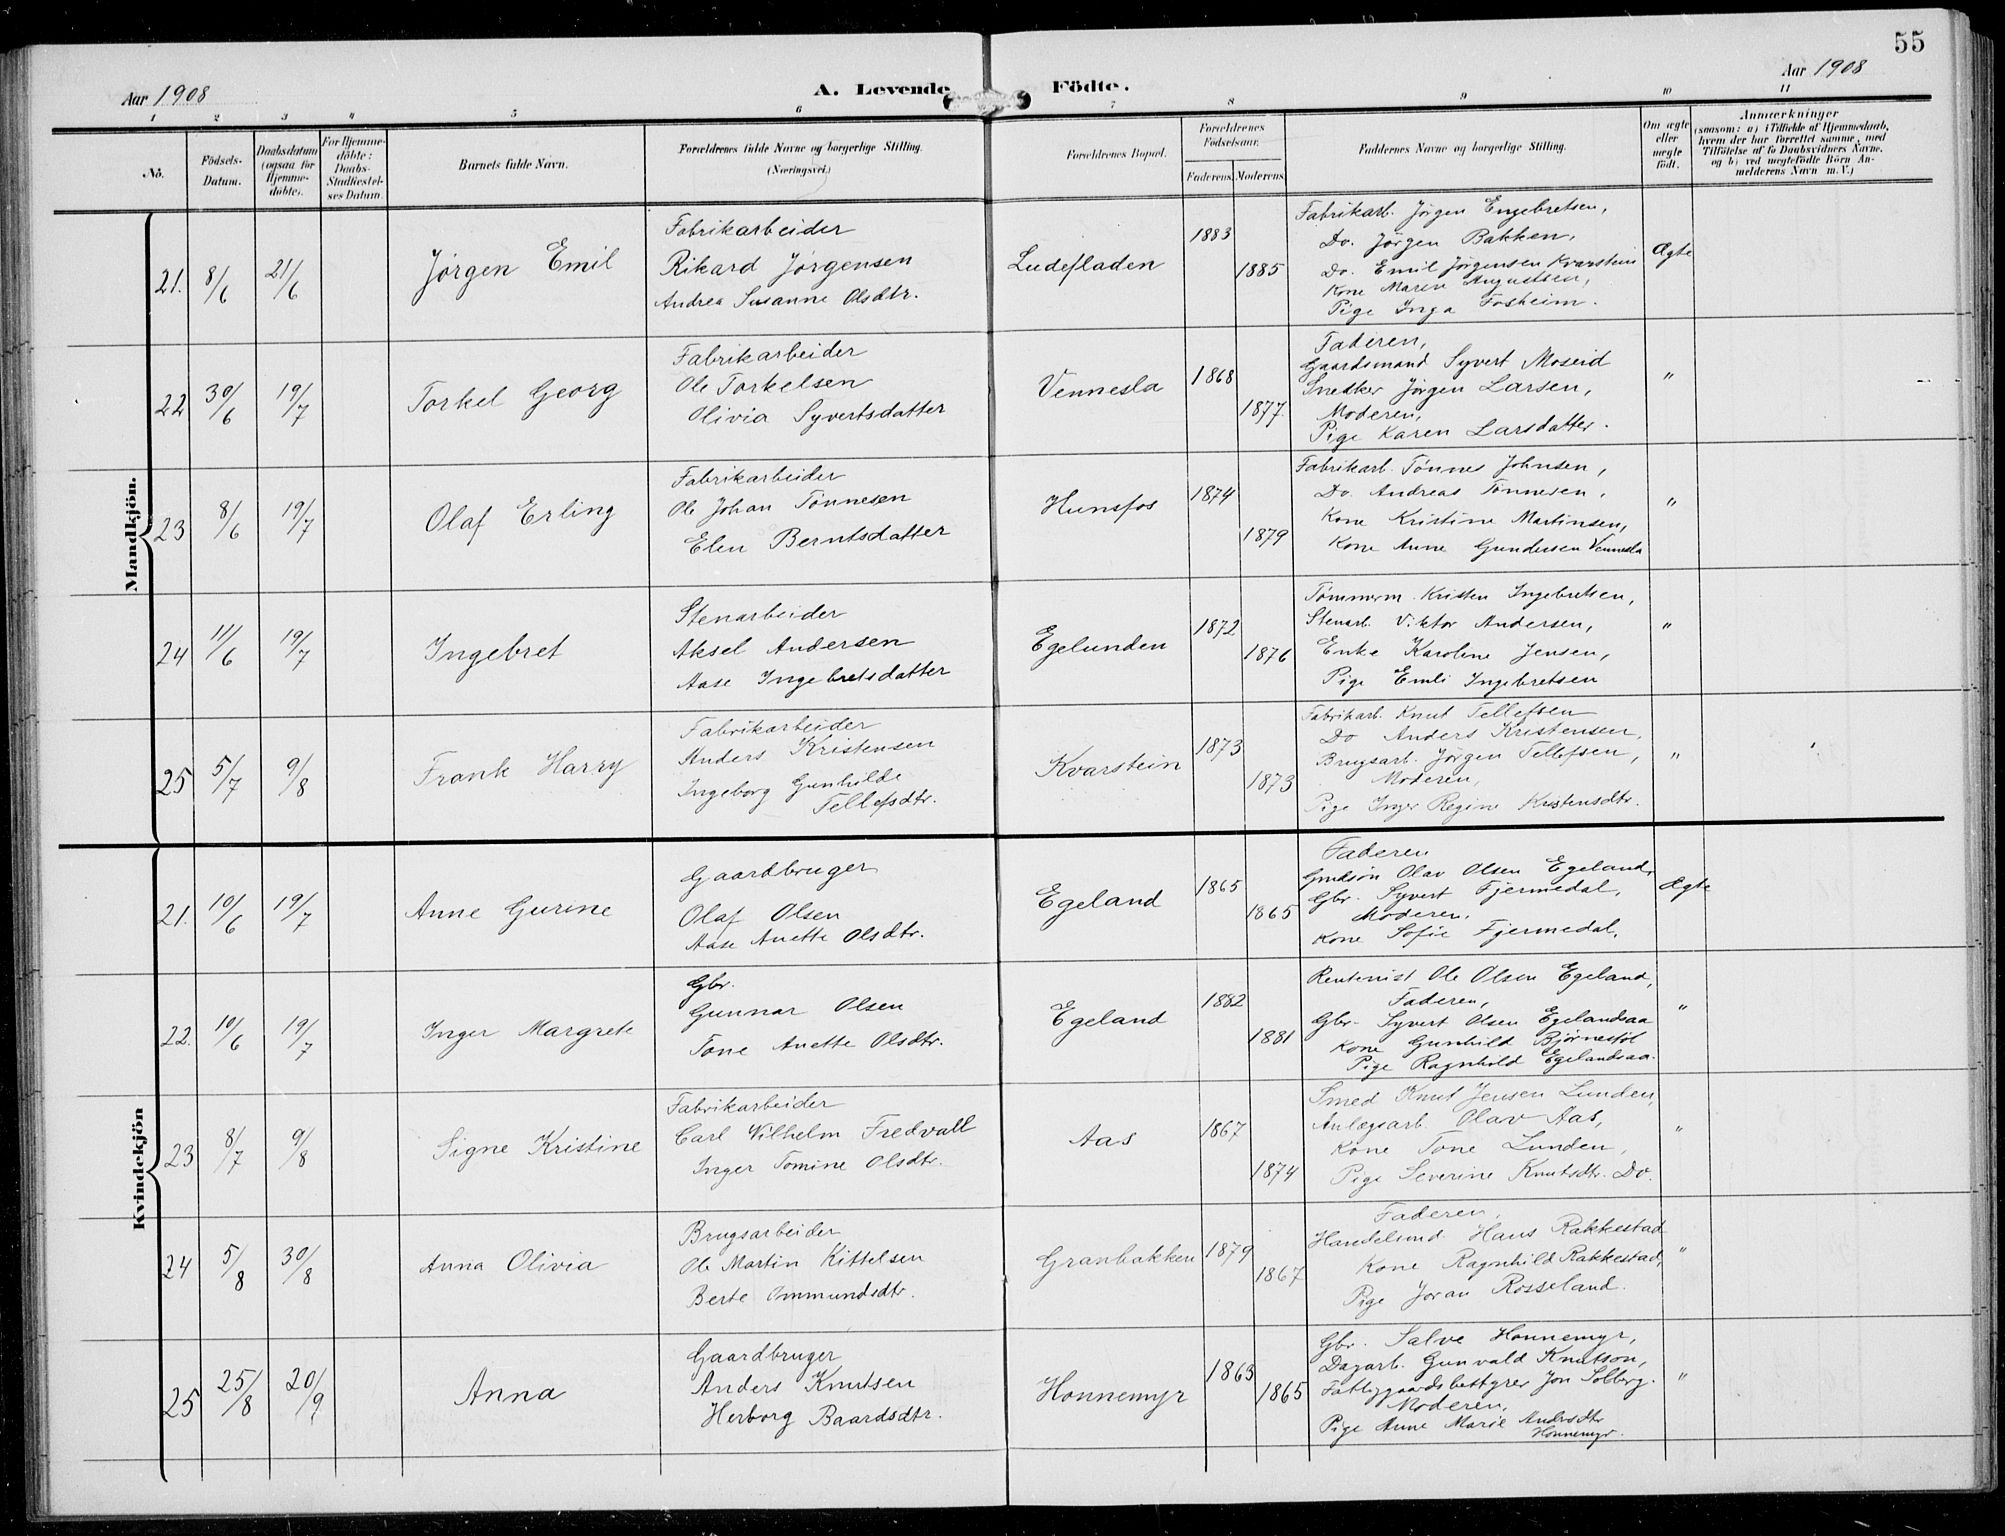 55
Aar 1908
A. Levende Födte.
Aar 1908
1 2 3 4 5 6 7 8 9 10 11
No.
Födsels-Datum.
Daabsdatum (ogsaa for Hjemme-døbte).
For Hjemme-döbte: Daabs-Stadfæstel-ses Datum.
Barnets fulde Navn.
Forældrenes fulde Navne og borgerlige Stilling. (Næringsvei.)
Forældrenes Bopæl.
Forældrenes Födselsaar.
Faderens. Moderens.
Faddernes Navne og borgerlige Stilling.
Om ægte eller uægte født.
Anmærkninger
(saasom: a) i Tilfælde af Hjemmedaab, hvem der har forrettet samme, med Tilföielse af to Daabsvidners Navne, og b) ved uegtefödte Börn Anmelderens Navn m. V.)
Mandkjön.
21. 8/6 21/6 Jørgen Emil
Fabrikarbeider
Rikard Jørgensen
Andrea Susanne Olsdtr.
Ludefladen 1883 1885
Fabrikarb. Jørgen Engebretsen,
Do. Jørgen Bakken,
Do. Emil Jørgensen Kvarstein
Kone Maren Augustsen,
Pige Inga Fosheim.
Ægte
22 30/6 19/7 Torkel Georg
Fabrikarbeider
Ole Torkelsen
Olivia Syvertsdatter
Vennesla 1868 1877.
Faderen,
Gaardsmand Syvert Moseid
Snedker Jørgen Larsen,
Moderen,
Pige Karen Larsdatter.
"
23 8/6 19/7 Olaf Erling
Fabrikarbeider
Ole Johan Tønnesen
Elen Berntsdatter
Hunsfos 1874 1879
Fabrikarb. Tønnes Johnsen,
Do. Andreas Tønnesen,
Kone Kristine Martinsen,
Kone Anne Gundersen Vennesla
"
24 11/6 19/7 Ingebret
Stenarbeider
Aksel Andersen
Aase Ingebretsdatter
Egelunden 1872 1876
Tømmerm. Kristen Ingebretsen,
Stenarb. Viktor Andersen,
Enke Karoline Jensen,
Pige Emli Ingebretsen
"
25 5/7 9/8 Frank Harry
Fabrikarbeider
Anders Kristensen
Ingeborg Gunhilde
Tellefsdtr.
Kvarstein 1873 1873
Fabrikarb. Knut Tellefsen
Do Anders Kristensen,
Brugsarb. Jørgen Tellefsen,
Moderen,
Pige Inger Regine Kristensdtr.
"
Kvindekjön
21. 10/6 19/7 Anne Gurine
Gaardbruger
Olaf Olsen
Aase Anette Olsdtr.
Egeland 1865 1865
Faderen
Gmdsøn Olav Olsen Egeland,
Gbr. Syvert Fjermedal,
Moderen,
Kone Sofie Fjermedal,
Ægte
22. 10/6 19/7 Inger Margrete
Gbr.
Gunnar Olsen
Tone Anette Olsdtr.
Egeland 1882 1881
Rentenist Ole Olsen Egeland,
Faderen,
Gbr. Syvert Olsen Egelandsaa
Kone Gunhild Bjørnestøl
Pige Ragnhild Egelandsaa.
"
23 8/7 9/8 Signe Kristine
Fabrikarbeider
Carl Vilhelm Fredvall
Inger Tomine Olsdtr.
Aas 1867 1874
Smed Knut Jensen Lunden,
Anlægsarb. Olav Aas,
Kone Tone Lunden,
Pige Severine Knutsdtr. Do.
"
24 5/8 30/8 Anna Olivia
Brugsarbeider
Ole Martin Kittelsen
Berte Ommundsdtr.
Granbakken 1879 1867
Faderen,
Handelsmd. Hans Rakkestad
Kone Ragnhild Rakkestad,
Pige Joran Rosseland.
"
25 25/8 20/9 Anna
Gaardbruger
Anders Knutsen
Herborg Baardsdtr.
Honnemyr 1863 1865
Gbr. Salve Honnemyr,
Dagarb. Gunvald Knutson,
Fattiggaardsbestyrer Jon Solberg.
Moderen,
Pige Anne Marie Andersdtr
Honnemyr.
"